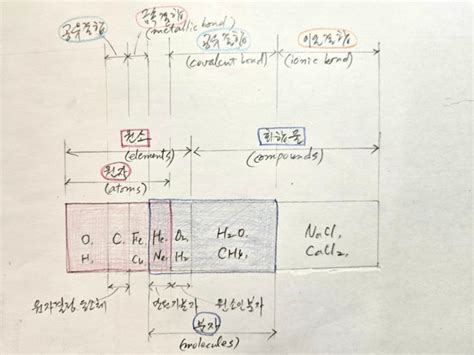 공유결합 금속결합 공유결합 이온결합
(metallic bond) (covalent bond) (ionic bond)
원소 화합물
(elements) (compounds)
원자
(atoms)
O, C, Fe, He, O₂, H₂O, NaCl,
H, Cu, Ne, H₂, CH₄, CaCl₂,
원자결정, 홑원소 원소인분자
분자
(molecules)